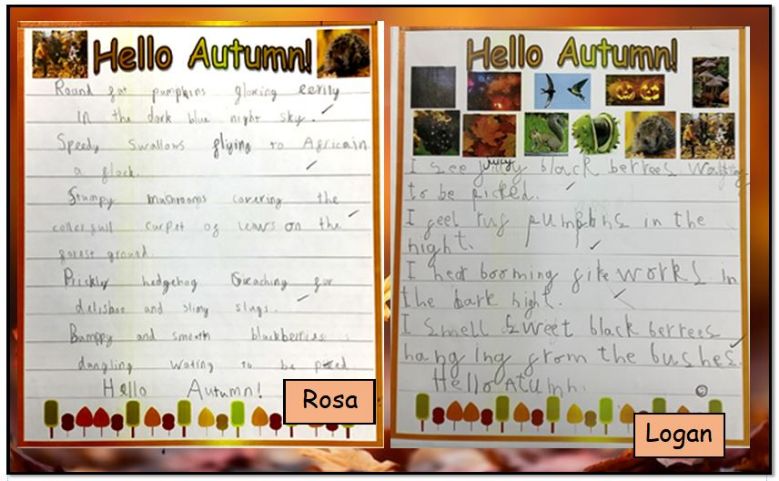 Hello Autumn!
Round fat pumpkins glowing eerily
in the dark blue night sky.
Speedy swallows flying to Africain
a flock.
Stumpy mushrooms covering the
carpet of leavs on the
forest ground.
Prickly hedgehog Seaching for
delishos and slimy slugs.
Bumppy and smooth blackberries
dangling wating to be
Hello Autumn!
Rosa
Hello Autumn!
I see juicy black berrees wating
to be picked.
I feel pumpkins in the
night.
I hear booming fireworks in
the dark night.
I smell Sweet black berrees
hanging from the bushes.
Hello Atumn.
Logan